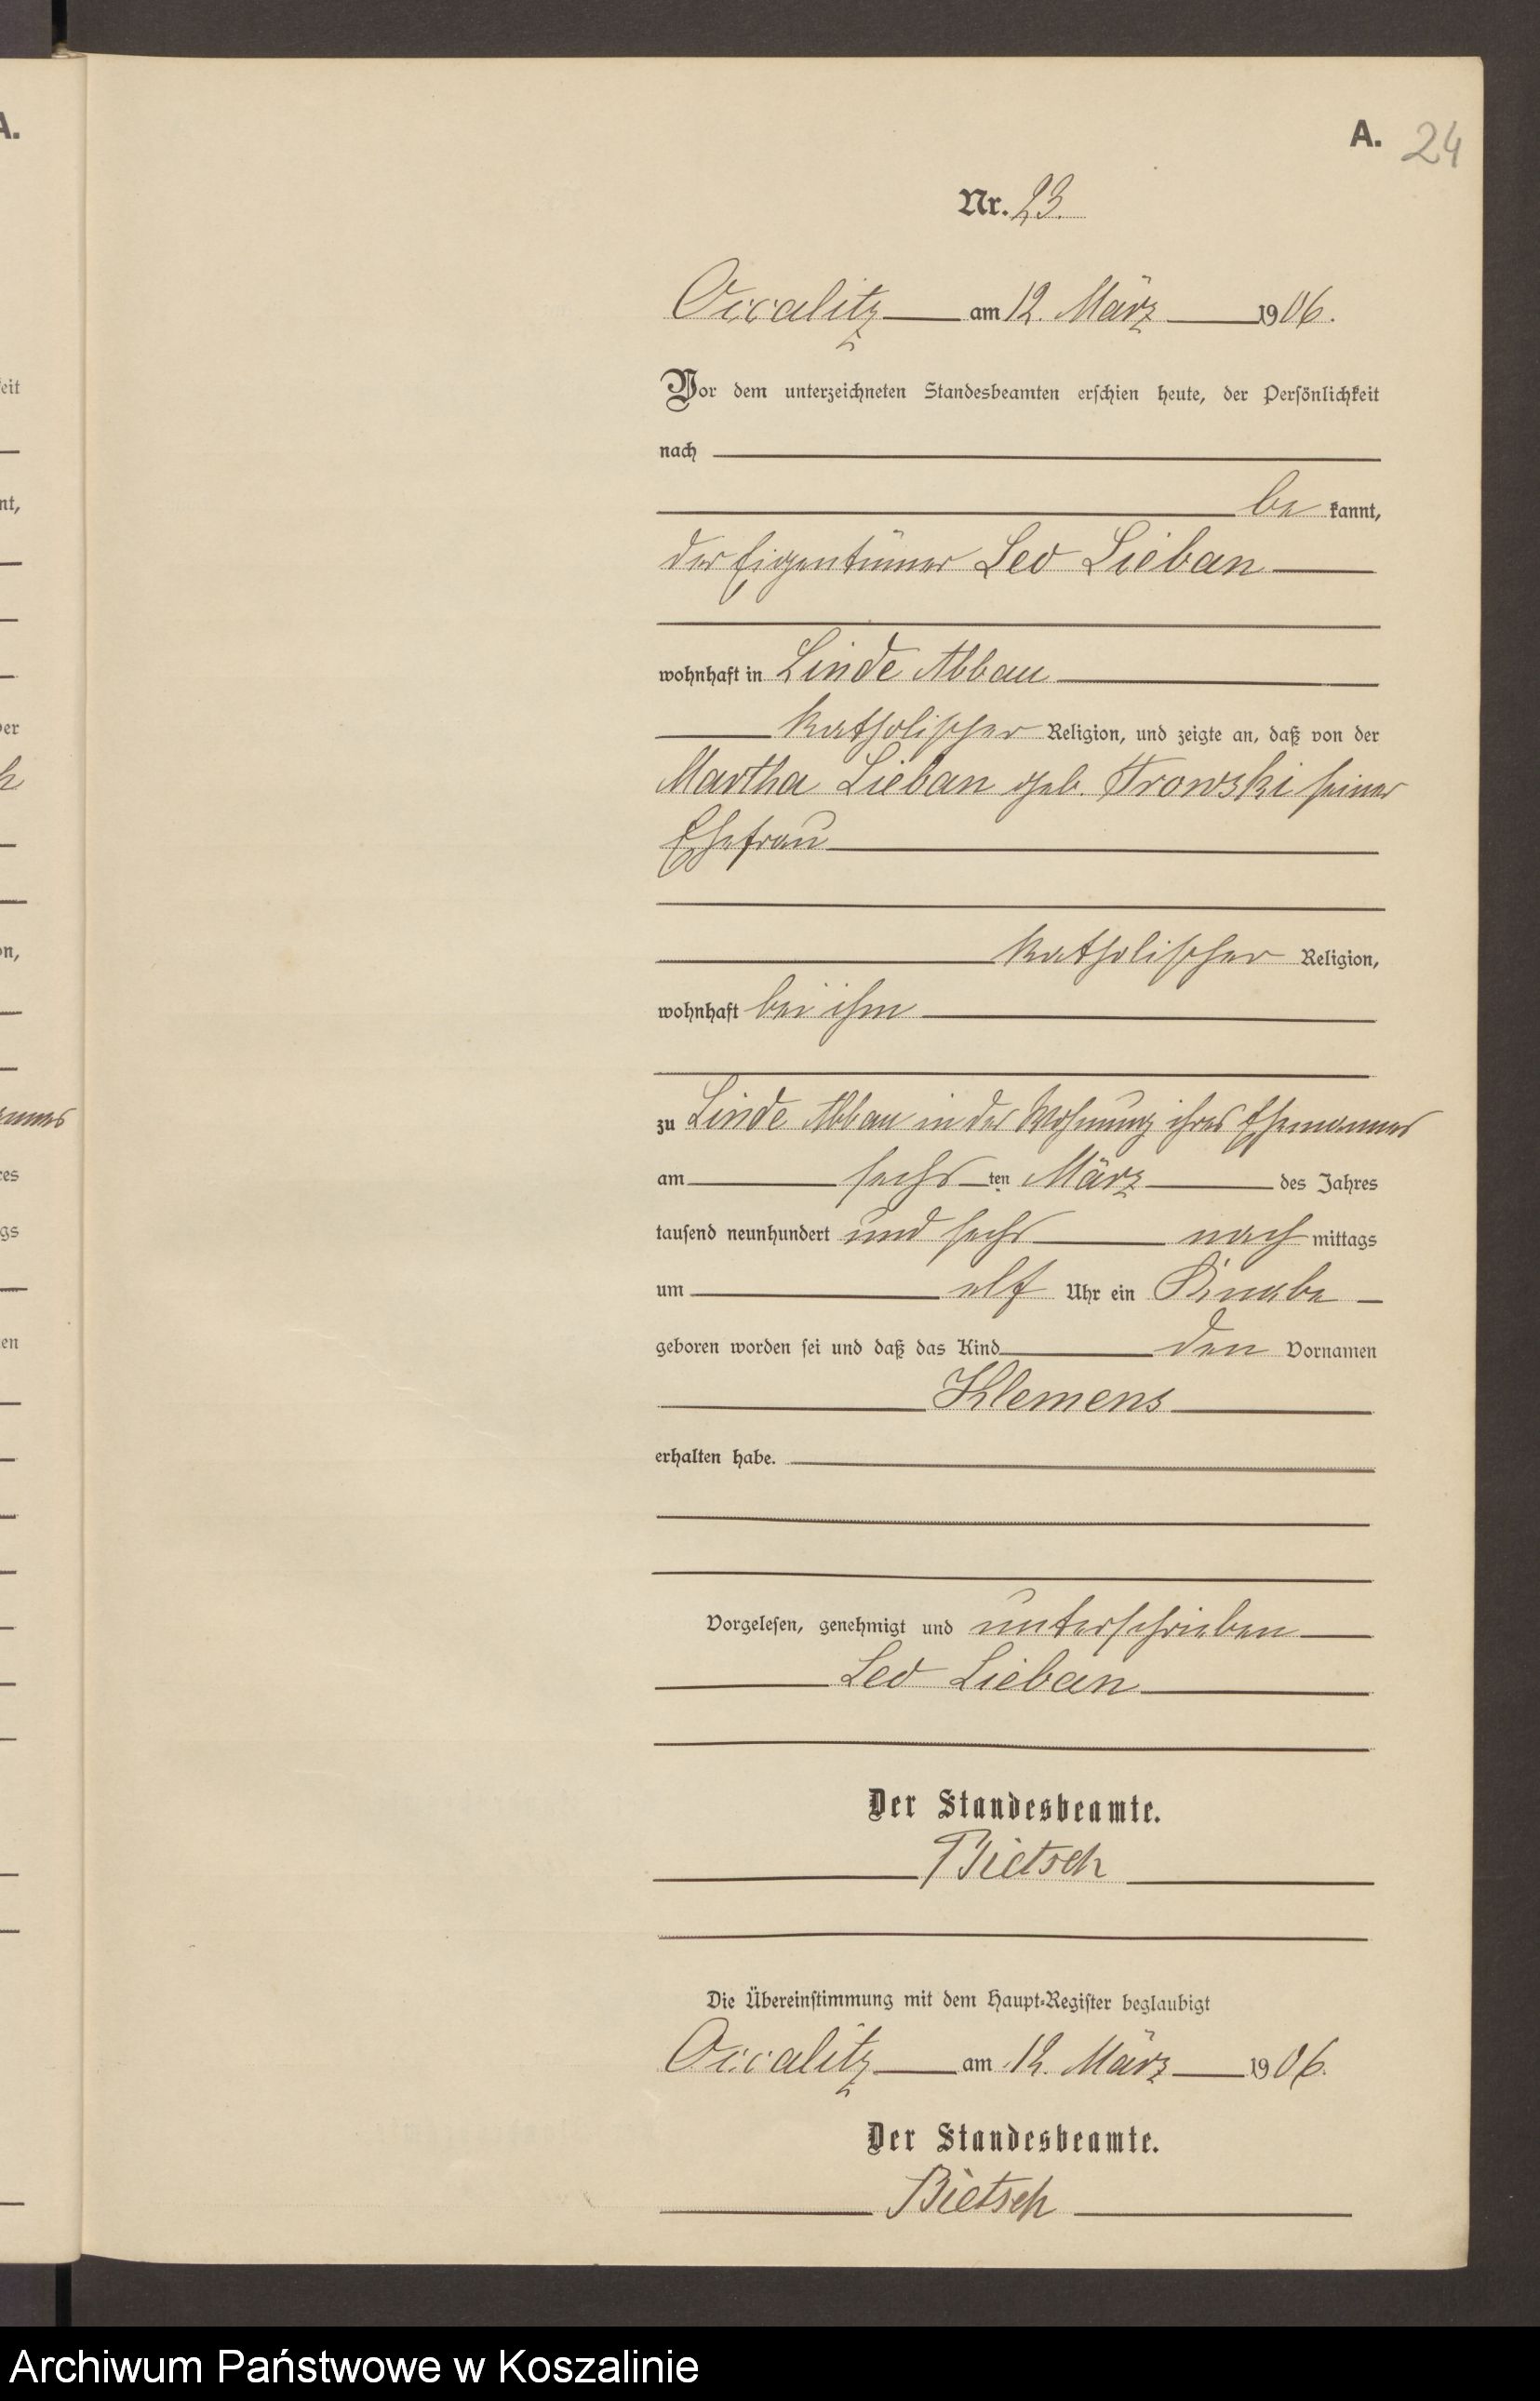 A.
A. 24
Nr. 23.
Occalitz am 12. März 1906.
Vor dem unterzeichneten Standesbeamten erschien heute, der Persönlichkeit
nach
be kannt,
der Eigentümer Leo Lieban
wohnhaft in Linde Abbau
katholischer Religion, und zeigte an, daß von der
Martha Lieban geb. Trowski seiner
Ehefrau
katholischer Religion,
wohnhaft bei ihm
zu Linde Abbau in der Wohnung ihres Ehemannes
am sechsten März des Jahres
tausend neunhundert und sechs nach mittags
um elf Uhr ein Knabe
geboren worden sei und daß das Kind den Vornamen
Klemens
erhalten habe.
Vorgelesen, genehmigt und unterschrieben
Leo Lieban
Der Standesbeamte.
Bietsch
Die Übereinstimmung mit dem Haupt-Register beglaubigt
Occalitz am 12. März 1906.
Der Standesbeamte.
Bietsch
Archiwum Państwowe w Koszalinie